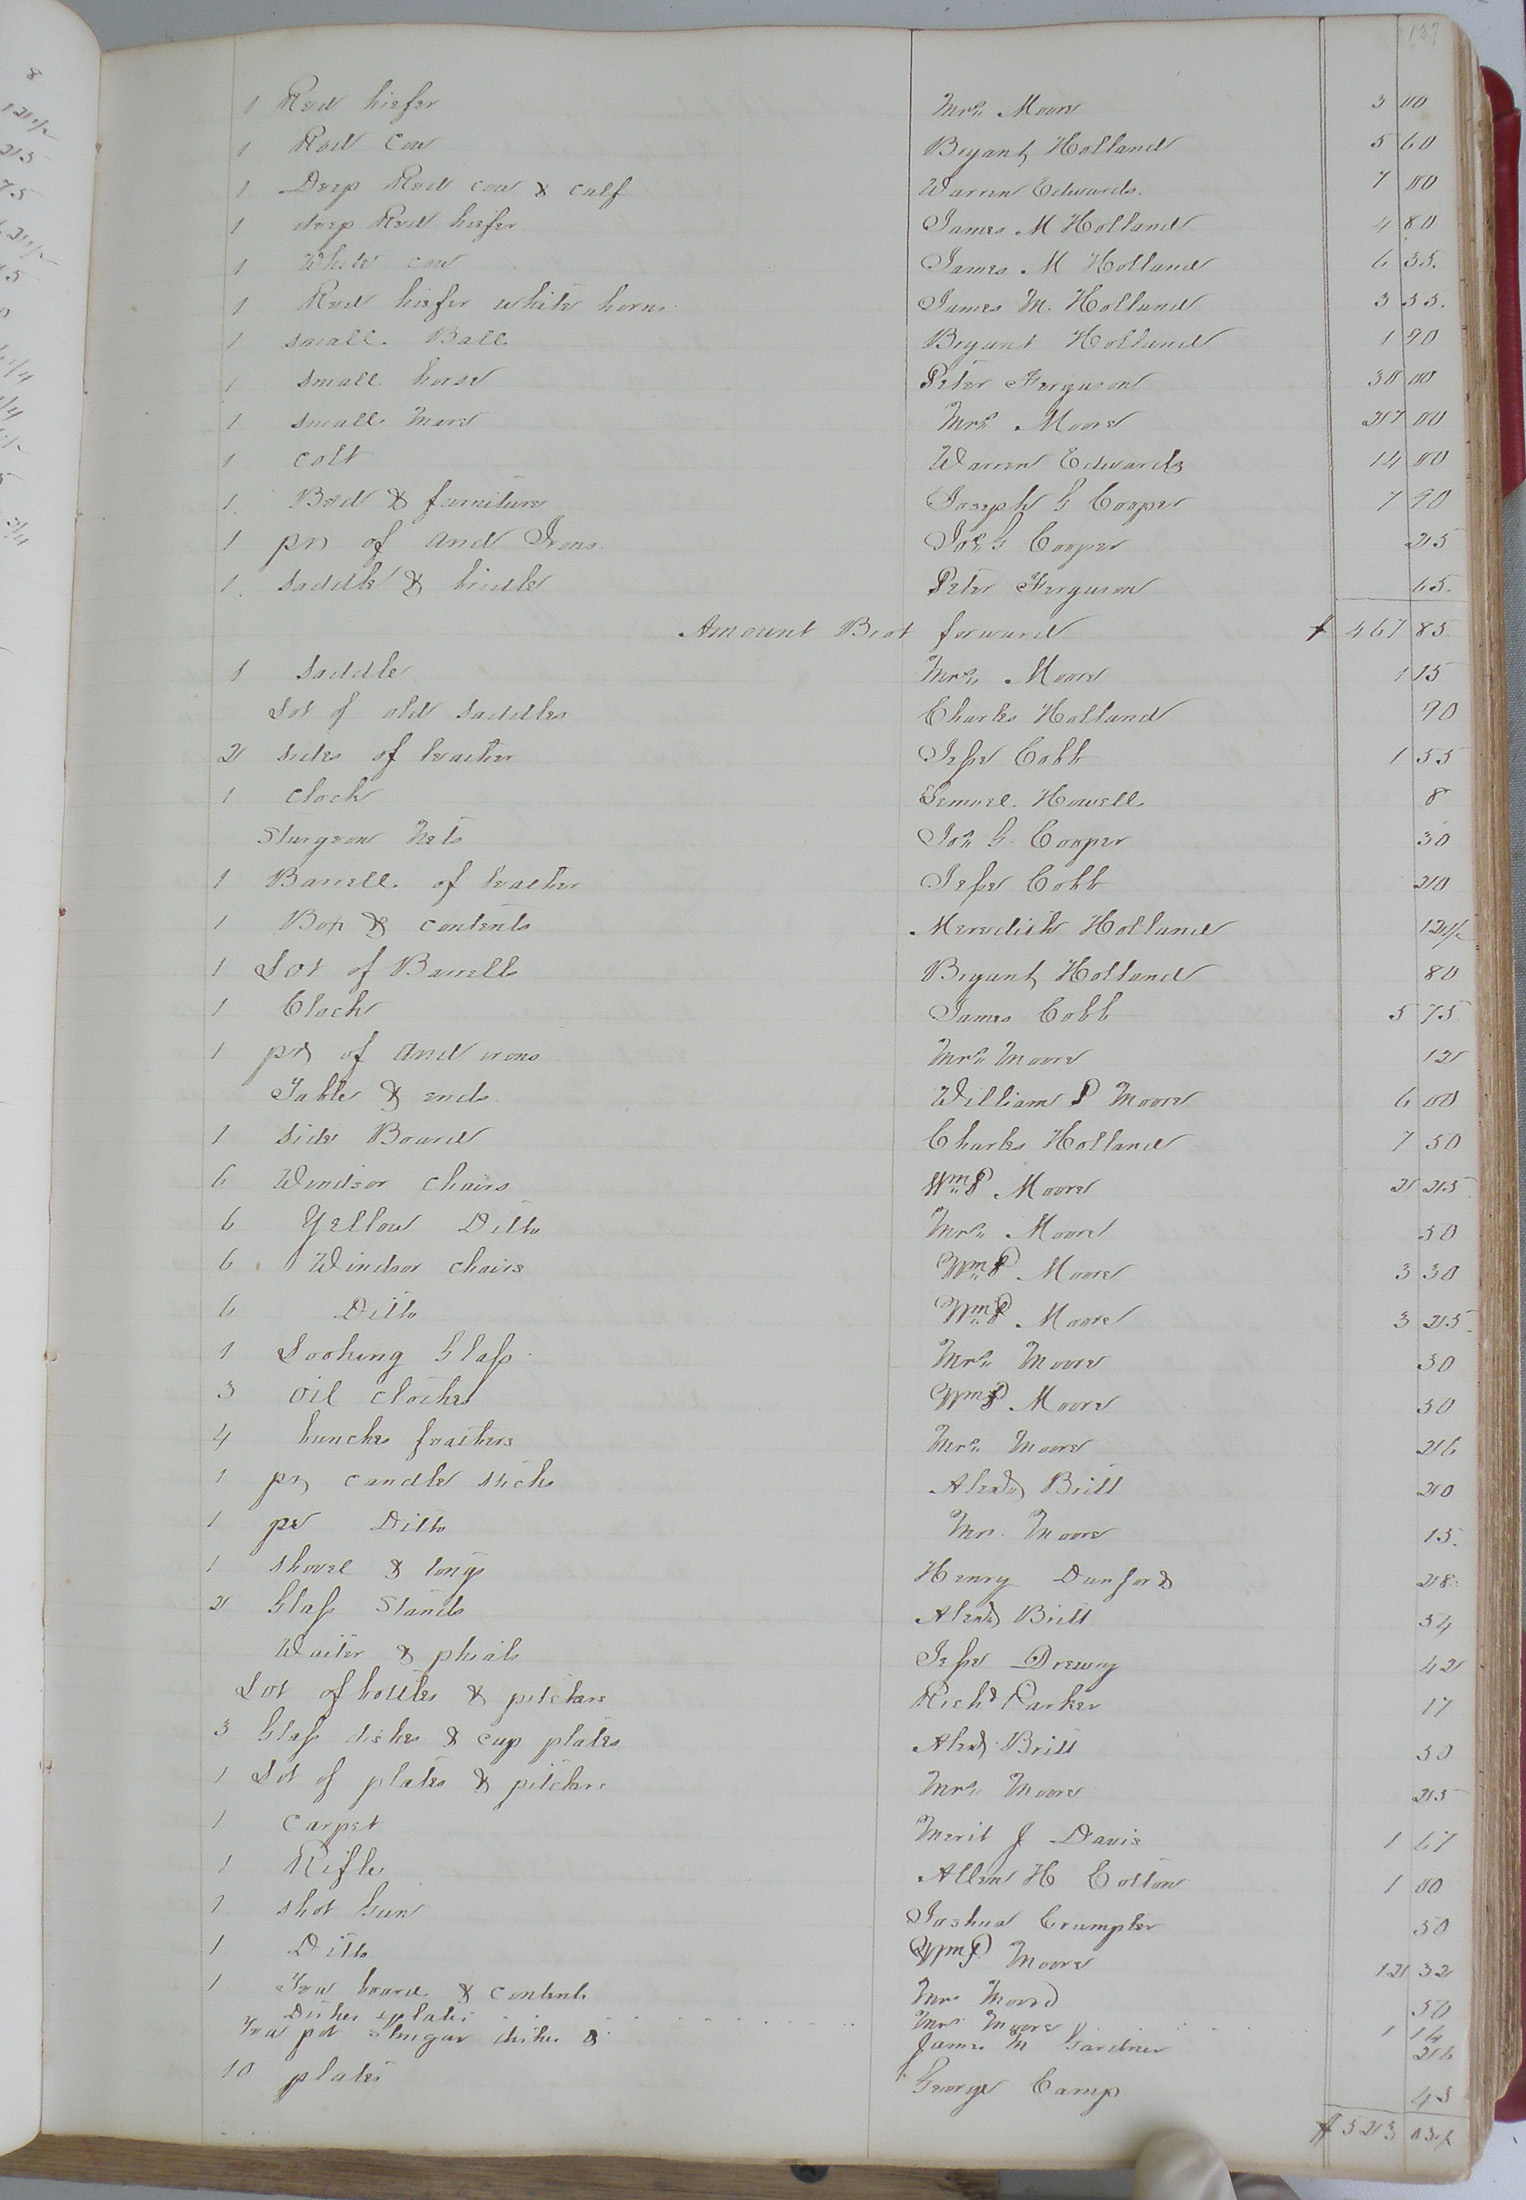 137
1 Red hiefer Mrs. Moore 3 00
1 Red Cow Bryant Holland 5 60
1 Deep Red cow & calf Warren Edwards. 7 00
1 deep Red hiefer James M Holland 4 80
1 White cow James M Holland 6 35.
1 Red hiefer white horns James M. Holland 3 55.
1 small Bull Bryant Holland 1 90
1 small horse Peter Ferguson 30 00
1 small Mare Mrs. Moore 27 00
1 colt Warren Edwards 14 00
1 Bed & furniture Joseph G Cooper 7 90
1 pr of and Irons Jos. G Cooper 25
1 Saddle & bridle Peter Ferguson 65.
Amount Brot forward $ 467 85
1 Saddle Mrs. Moore 1 15
Lot of old Saddles Charles Holland 90
2 sides of leather Jesse Cobb 1 55
1 Clock Lemuel Howell 8
Sturgeon Nets Jos. G. Cooper 30
1 Barrell of leather Jesse Cobb 20
1 Box & contents Meredith Holland 12 1/2
1 Lot of Barrells Bryant Holland 80
1 Clock James Cobb 5 75
1 pr of and irons Mrs. Moore 12
Table & ends William P Moore 6 00
1 Side Board Charles Holland 7 50
6 Windsor chairs Wm P Moore 2 25
6 Yellow Ditto Mrs. Moore 50
6 Windsor chairs Wm P Moore 3 30
6 Ditto Wm P Moore 3 25
1 Looking Glass Mrs. Moore 30
3 oil clothes Wm P Moore 50
4 bunches feathers Mrs. Moore 26
1 pr candle sticks Alexd Britt 20
1 pr Ditto Mrs. Moore 15.
1 shovel & tongs Henry Dunford 28
2 Glass Stands Alexd Britt 54
Waiter & phials Jesse Drewry 42
Lot of bottles & pitchers Richd Parker 17
3 Glass dishes & cup plates Alexd Britt 50
1 Lot of plates & pitchers Mrs. Moore 25
1 Carpet Merit J Davis 1 67
1 Rifle Allen H Cotton 1 00
1 shot Gun Joshua Crumpler 50
1 Ditto Wm P Moore 12 32
1 Tea board & Contents Mrs Moore 50
Dishes & plates Mrs. Moore 1 14
Tea pot Shugar dishes & James M Gardner 26
10 plates George Camp 43
$ 523 03 1/2